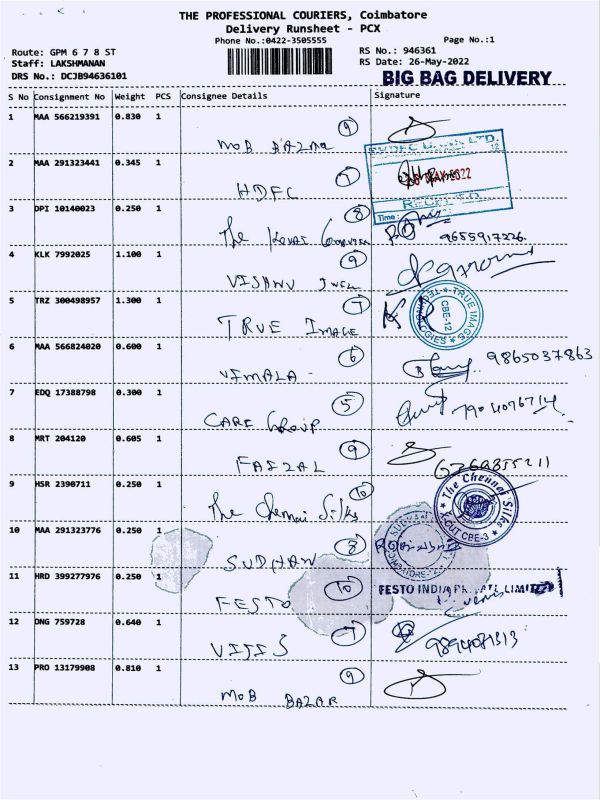 THE PROFESSIONAL COURIERS, Coimbatore
Delivery Runsheet - PCX
Phone No.:0422-3505555 Page No.:1
Route: GPM 6 7 8 ST RS No.: 946361
Staff: LAKSHMANAN RS Date: 26-May-2022
DRS No.: DCJB94636101 BIG BAG DELIVERY
S No Consignment No Weight PCS Consignee Details Signature
1 MAA 566219391 0.830 1
9
MOB BAZAR
2 MAA 291323441 0.345 1
7
HDFC
RECEIVED
Time:
3 DPI 10140023 0.250 1
8
The Kovai
9655917226
4 KLK 7992025 1.100 1
9
5 TRZ 300498957 1.300 1
7
TRUE IMAGE
TRUE IMAGE
CBE-12
6 MAA 566824020 0.600 1
6
VIMALA 9865037863
7 EDQ 17388798 0.300 1
5
CARE GROUP
8 MRT 204120 0.605 1
9
FAIZAL
9 HSR 2390711 0.250 1
10
The Chennai Silks
The Chennai Silks
CBE-3
10 MAA 291323776 0.250 1
8
11 HRD 399277976 0.250 1
10
FESTO
FESTO INDIA PRIVATE LIMITED
12 DNG 759728 0.640 1
7
9894081313
13 PRO 13179908 0.810 1
9
MOB BAZAR